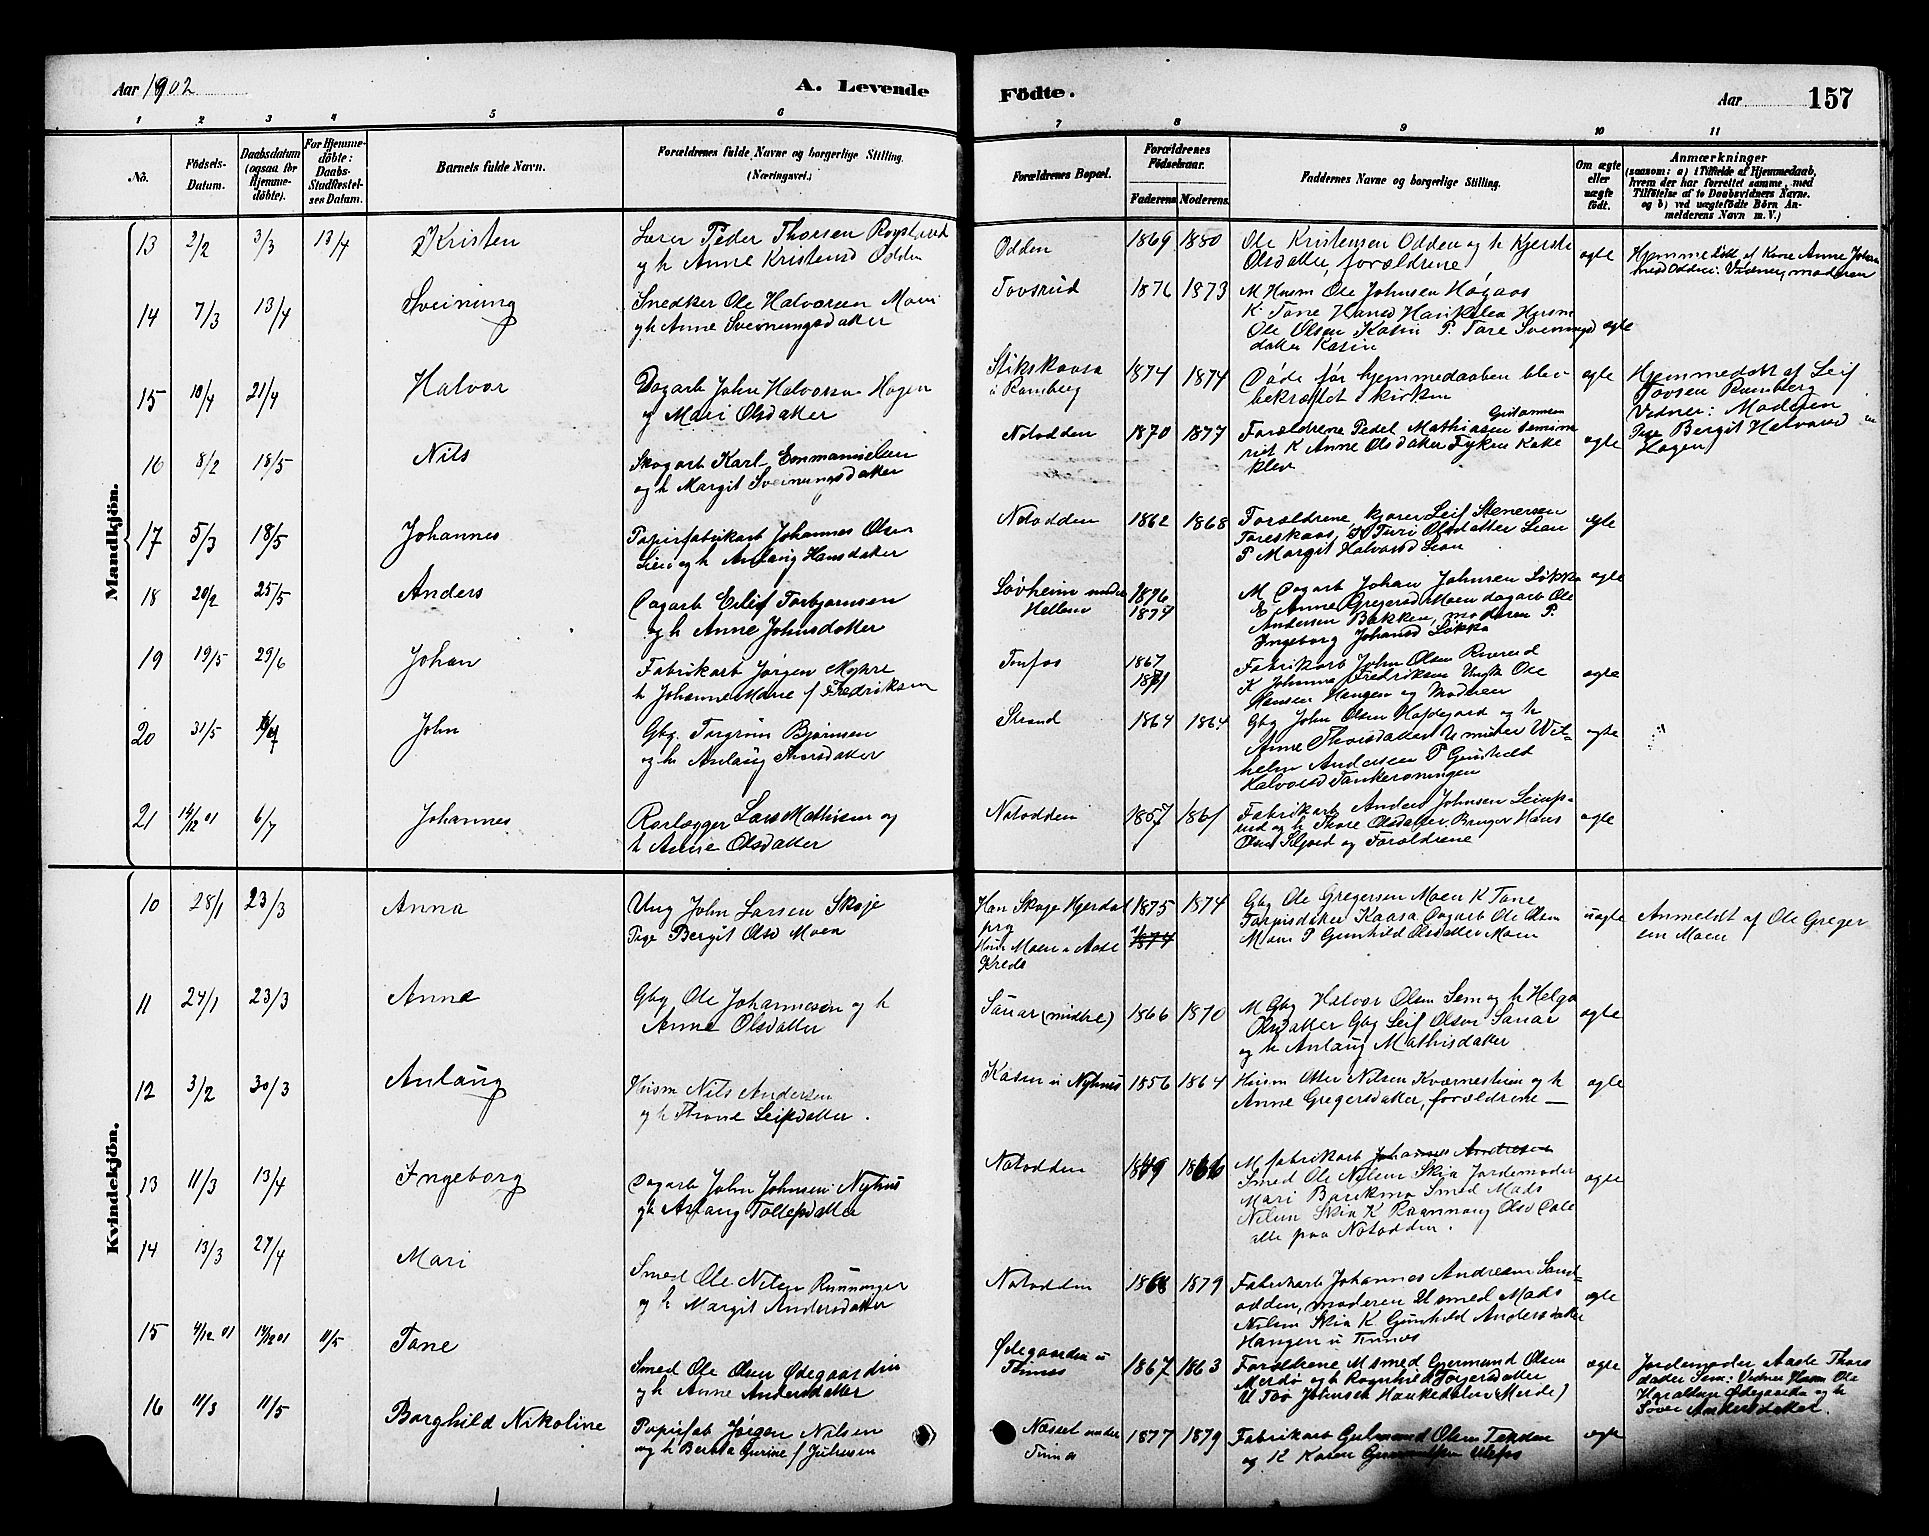 Aar 1902
A. Levende
Födte.
Aar
157
1 2 3 4 5 6 7 8 9 10 11
No.
Födsels-Datum.
Daabsdatum (ogsaa for Hjemme-döbte).
For Hjemme-döbte: Daabs-Stadfæstel-ses Datum.
Barnets fulde Navn.
Forældrenes fulde Navne og borgerlige Stilling.
(Næringsvei.)
Forældrenes Bopæl.
Forældrenes Födselsaar.
Faderens. Moderens.
Faddernes Navne og borgerlige Stilling.
Om ægte eller uægte födt.
Anmærkninger
(saasom: a) i Tilfælde af Hjemmedaab,
hvem der har forrettet samme, med
Tilföielse af to Daabsvidners Navne.
og b) ved uægtefödte Börn An-
melderens Navn m. V.)
Mandkjön.
13 2/2 3/3 13/4 Kristen
Lærer Peder Thorsen
og h Anne Kristensd Odden
Odden 1869 1880
Ole Kristensen Odden og h Kjersti
Olsdatter, forældrene
ægte
Hjemmedöbt af Kone Anne Johan
Odden: Vidner, moderen
14 7/3 13/4 Sveinung
Snedker Ole Halvorsen Moen
og h Anne Sveinungsdatter
Tovsrud 1876 1873
M Husm Ole Johnsen Høgaas
K Tone Hansd Husm
Ole Olsen Kasin P. Tore Sveinungs
datter Kasin
ægte
15 10/4 21/4 Halvor
Dagarb John Halvorsen Hagen
og Mari Olsdatter
i Ramberg 1874 1874
Døde før hjemmedaaben blev
bekræftet i kirken
ægte
Hjemmedøbt af Leif
Tovsen Ramberg
Vidner: Moderen
Pige Bergit Halvorsd
Hagen
16 8/2 18/5 Nils
Skogarb Karl Emmanuelsen
og h Margit Sveinungsdatter
Notodden 1870 1877
Forældrene Peder Mathiasen
K Anne Olsdatter
klev
ægte
17 5/3 18/5 Johannes
Papirfabrikarb Johannes Olsen
Lien og h Anlaug Hansdatter
Notodden 1862 1868
Forældrene, kjører Leif Stenersen
Toreskaas, K Turi Olsdatter Lien
P Margit Halvorsd Lien
ægte
18 20/2 25/5 Anders
Dagarb Eilif Torbjørnsen
og h Anne Johnsdatter
Løvheim under
Hellem
1876
1874
M Dagarb Johan Johnsen Løkka
K Anne Gregersd Moen dagarb Ole
Andersen Bakken, moderen P.
Ingeborg Johansd Løkka
ægte
19 19/5 29/6 Johan
Fabrikarb Jørgen Myhre
h Johanne Marie f Fredriksen
Tinfos
1867
1871
Fabrikarb John Olsen
K Johanne Fredriksen Ungk Ole
Hansen Haugen og Moderen
ægte
20 31/5 John
Gbg. Torgrim Bjørnsen
og h Anlaug Thorsdatter
Strand 1864 1864
Gbg John Olsen Høidegard og h
Anne Thorsdatter U mister Wil-
helm Andersen P Gunhild
Halvorsd
ægte
21 14/12 01 6/7 Johannes
Rørlægger Lars Mathisen og
h Anne Olsdatter
Notodden 1857 1861
Fabrikarb Anders Johnsen
rud og h Thore Olsdatter, Bruger Hans
Olsen og Forældrene
ægte
Kvindekjön.
10 28/1 23/3 Anna
Ung John Larsen Skøje
Pige Bergit Olsd Moen
Han Skøje Hjerdal
prg
Hun Moen i
Kreds
1875 1874
1874
Gbg Ole Gregersen Moen K Tone
Kaasa Dagarb Ole Olsen
Moen P Gunhild Olsdatter Moen
uægte
Anmeldt af Ole Greger
sen Moen
11 24/1 23/3 Anne
Gbg Ole Johannesen og h
Anne Olsdatter
Sanar (midtre) 1866 1870
M Gbg Halvor Olsen Sem og h Helga
Olsdatter Gbg Leif Olsen Sanar
og h Anlaug Mathisdatter
ægte
12 3/2 30/3 Anlaug
Husm Nils Andersen
og h Thone Leifsdatter.
Kasin u Nyhus 1856 1864
Husm Otter Nilsen Kvernesteien og h
Anne Gregersdatter, forældrene —
ægte
13 11/3 13/4 Ingeborg
Dagarb John Johnsen Nyhus
og h Anlaug Tollefsdatter
Notodden 1849 1866
M fabrikarb Johannes Andresen
Smed Ole Nilsen Skia Jordemoder
Mari Smed Mads
Nilsen Skia K Raannaug Olsd Dale
alle paa Notodden.
ægte
14 13/3 27/4 Mari
Smed Ole Nilsen
og h Margit Andersdatter
Notodden 1868 1879
Fabrikarb Johannes Andresen Sand-
odden, moderen U smed Mads
Nilsen Skia K Gunhild Andersdatter
Haugen u Tinnes
ægte
15 4/12 01 14/12 01 11/5 Tone
Smed Ole Olsen Ødegaarden
og h Anne Andersdatter
Ødegaarden u
Tinnes 1867 1863
Forældrene M smed Gjermund Olsen
Merdø og h Ragnhild
U Tov Johnsen
ægte
Jordemoder Aade Thors
datter Sem: Vidner Husm Ole
Ødegaarden og h
Andersdatter.
16 11/3 11/5 Borghild Nikoline
Papirfab Jørgen Nilsen
og h Berta Gurine f Juliusen
Næsset under
Tinne 1877 1879
Fabrikarb Gulmund Olsen
og K Karen Ulefos
ægte